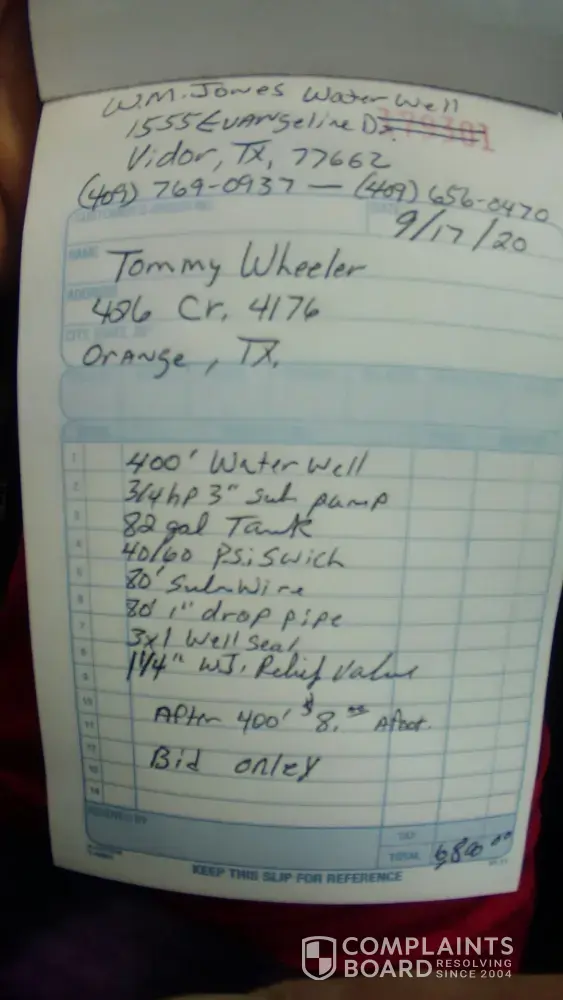 W.M. Jones Water Well
1555 Evangeline Dr.
Vidor, TX, 77662
(409) 769-0937 — (409) 656-0470
9/17/20
NAME Tommy Wheeler
ADDRESS
486 Cr. 4176
Orange, TX.
1 400' Water Well
2 3/4hp 3" Sub pump
3 82 gal Tank
4 40/60 P.S.i Swich
5 80' Sub Wire
6 80' 1" drop pipe
7 3x1 Well Seal
8 1 1/4" W.J. Relief Valve
9
10
11 After 400' $8.00 A foot.
12
13 Bid onley
14
RECEIVED BY
TAX
TOTAL 6,800 00
KEEP THIS SLIP FOR REFERENCE
COMPLAINTS
BOARD RESOLVING
SINCE 2004